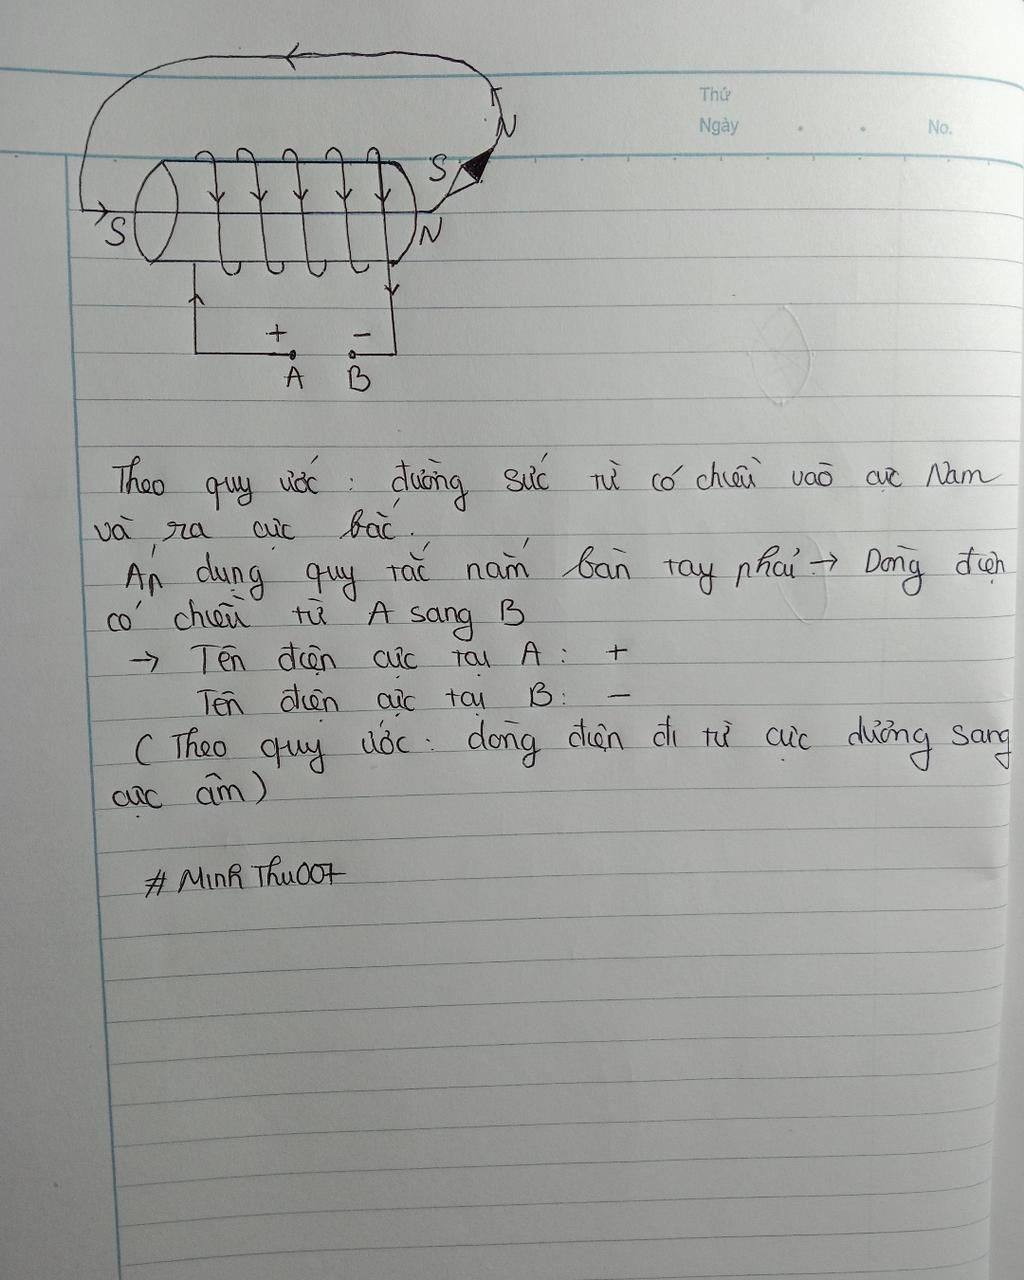 Thứ
Ngày . . No.
N
S
S N
+ −
A B
Theo quy ước : đường sức từ có chiều vào cực Nam
và ra cực bắc.
Áp dụng quy tắc nắm bàn tay phải → Dòng điện
có chiều từ A sang B
→ Tên điện cực tại A : +
Tên điện cực tại B : −
( Theo quy ước : dòng điện đi từ cực dương sang
cực âm )
# Minh Thu007